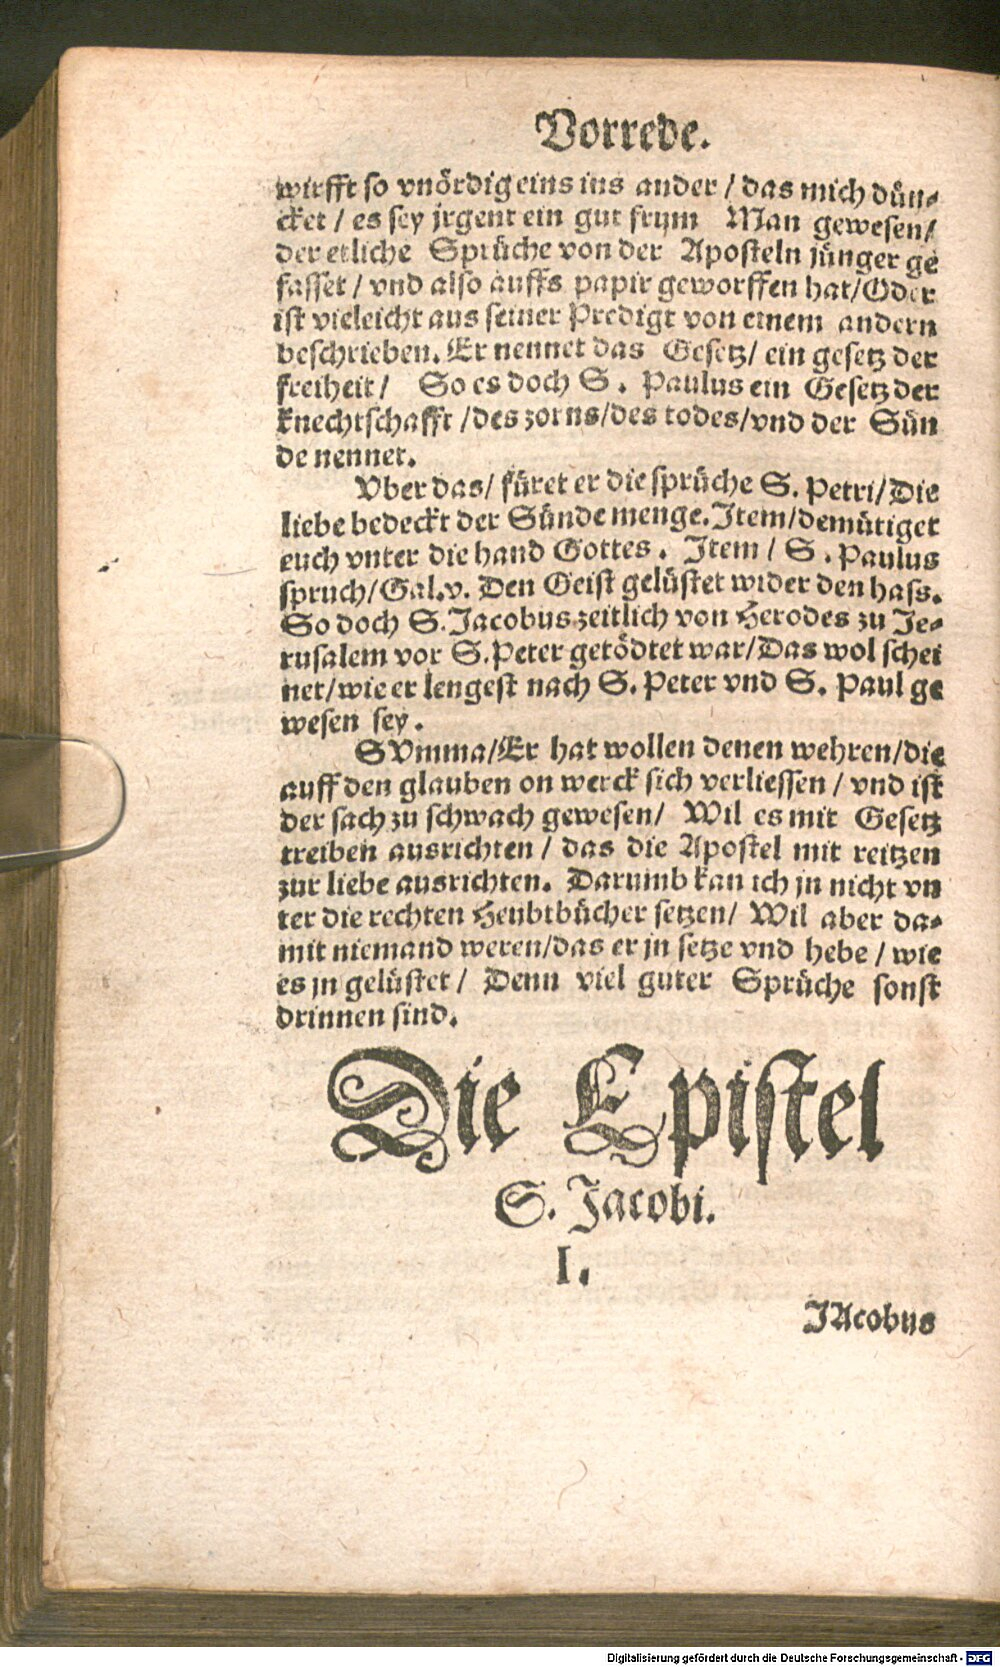 Vorrede.
wirfft so vnördig eins ins ander / das mich dün⸗
cket / es sey jrgent ein gut frum Man gewesen /
der etliche Sprüche von der Aposteln jünger ge
fasset / vnd also auffs papir geworffen hat / Oder
ist vieleicht aus seiner Predigt von einem andern
beschrieben. Er nennet das Gesetz / ein gesetz der
freiheit / So es doch S. Paulus ein Gesetz der
knechtschafft / des zorns / des todes / vnd der Sün
de nennet.
Vber das / füret er die sprüche S. Petri / Die
liebe bedeckt der Sünde menge. Item / demütiget
euch vnter die hand Gottes. Item / S. Paulus
spruch / Gal. v. Den Geist gelüstet wider den hass.
So doch S. Jacobus zeitlich von Herodes zu Je⸗
rusalem vor S. Peter getödtet war / Das wol schei
net / wie er lengest nach S. Peter vnd S. Paul ge
wesen sey.
SVmma / Er hat wollen denen wehren / die
auff den glauben on werck sich verliessen / vnd ist
der sach zu schwach gewesen / Wil es mit Gesetz
treiben ausrichten / das die Apostel mit reitzen
zur liebe ausrichten. Darumb kan ich jn nicht vn
ter die rechten Heubtbücher setzen / Wil aber da⸗
mit niemand weren / das er jn setze vnd hebe / wie
es jn gelüstet / Denn viel guter Sprüche sonst
drinnen sind.
Die Epistel
S. Jacobi.
I.
JAcobus
Digitalisierung gefördert durch die Deutsche Forschungsgemeinschaft - DFG